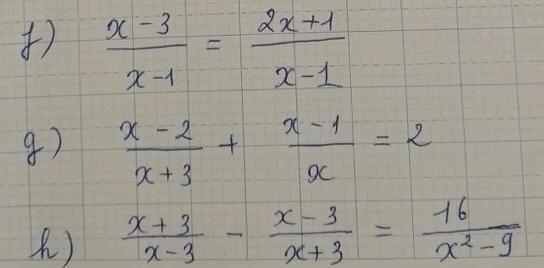 f) \frac{x-3}{x-1} = \frac{2x+1}{x-1}
g) \frac{x-2}{x+3} + \frac{x-1}{x} = 2
h) \frac{x+3}{x-3} - \frac{x-3}{x+3} = \frac{16}{x^2-9}